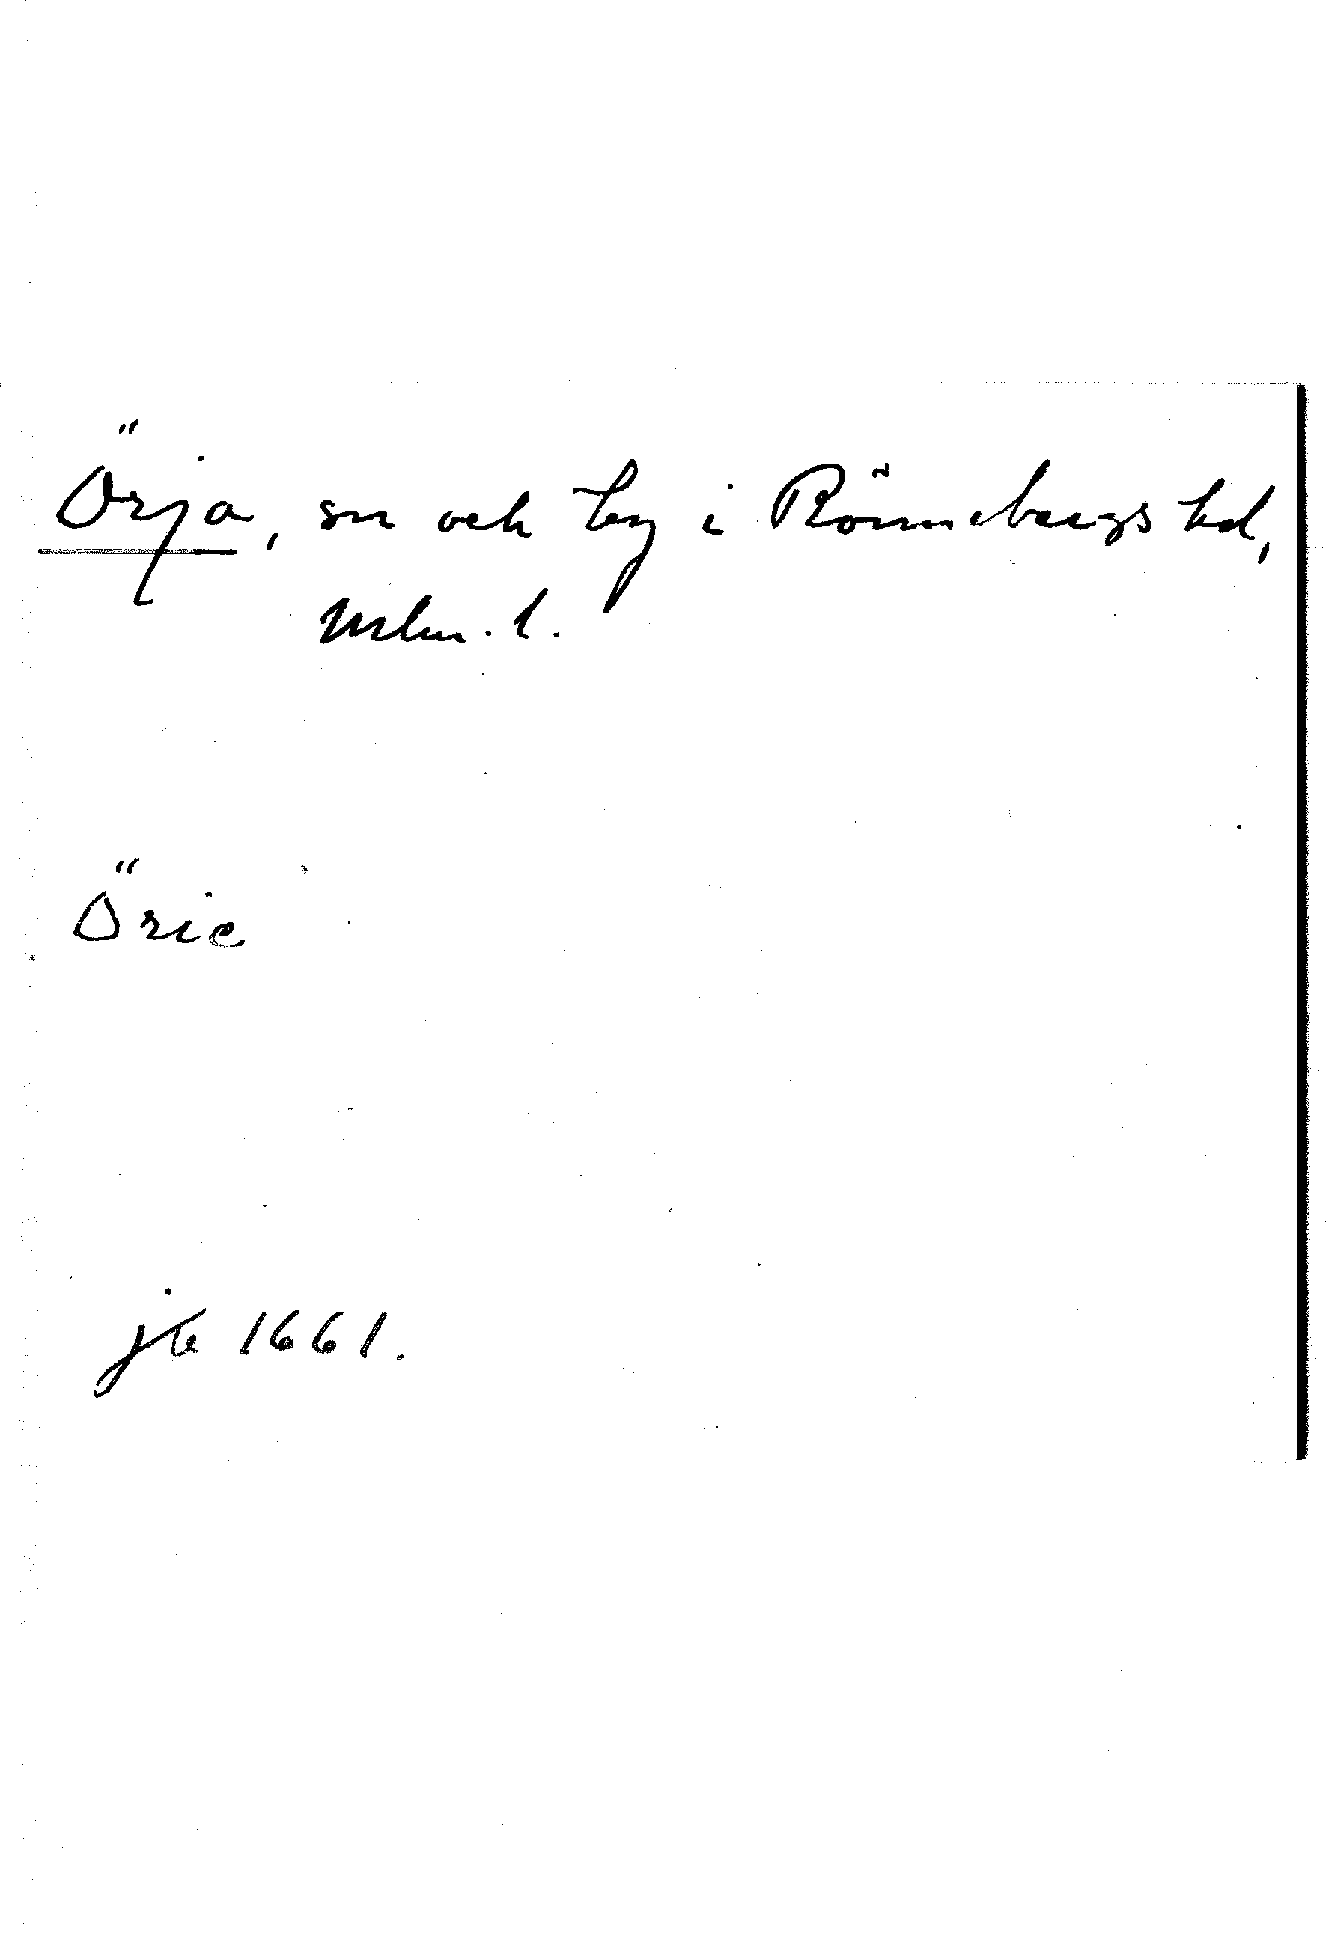 Örja, sn och by i Rönnebergs hd,
Mlm. l.
Örie
jb 1661.